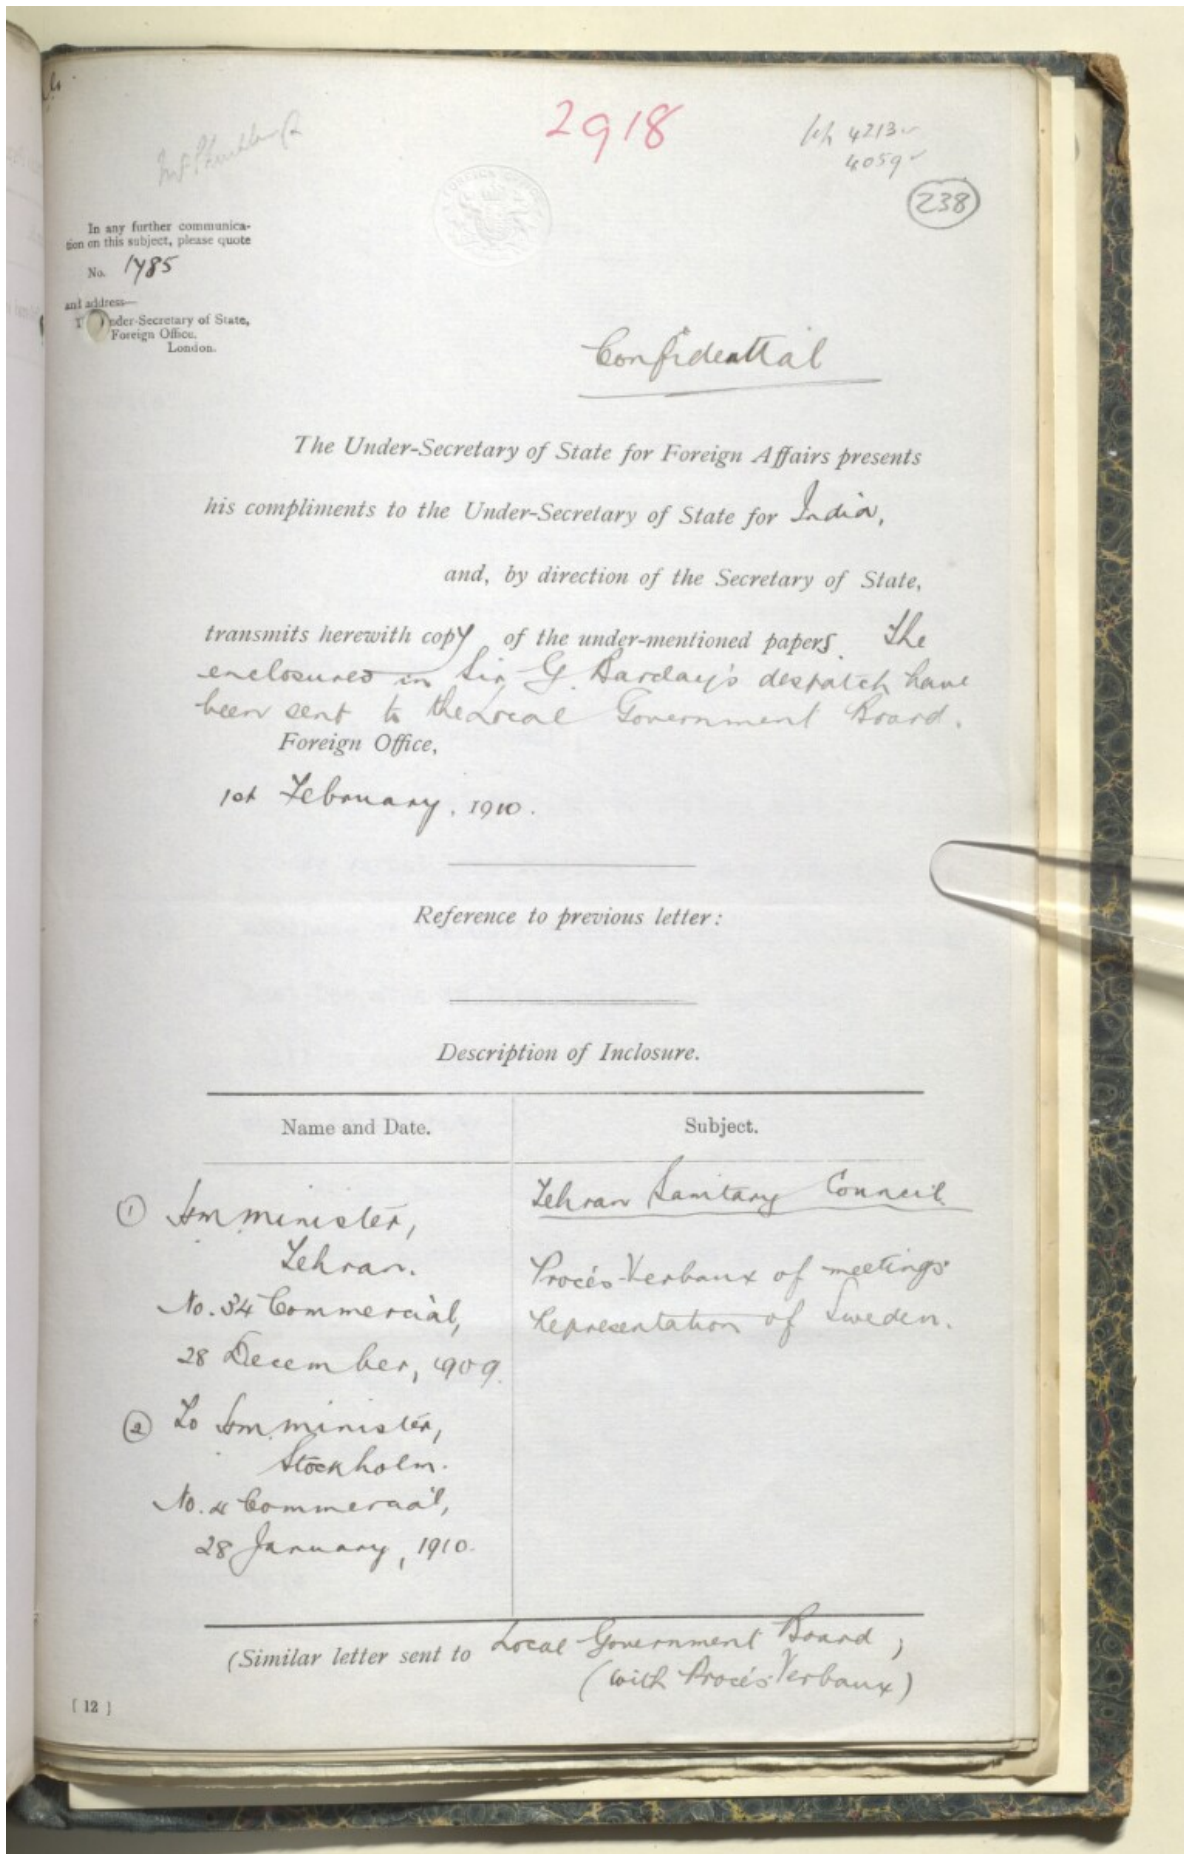 2918
4213
4059
238
In any further communica-
tion on this subject, please quote
No. 1785
and address—
The Under-Secretary of State,
Foreign Office,
London.
Confidential
The Under-Secretary of State for Foreign Affairs presents
his compliments to the Under-Secretary of State for India,
and, by direction of the Secretary of State,
transmits herewith copy of the under-mentioned papers. The
enclosures in Sir G. Barclay's despatch have
been sent to the Local Government Board.
Foreign Office,
1st February, 1910.
Reference to previous letter:
Description of Inclosure.
Name and Date.
Subject.
① Minister,
Tehran.
No. 34 Commercial,
28 December, 1909.
② To Minister,
Stockholm.
No. 4 Commercial,
28 January, 1910.
Tehran Sanitary Council
Procès-Verbaux of meetings
Representation of Sweden.
(Similar letter sent to Local Government Board,
(with Procès-Verbaux)
[12]